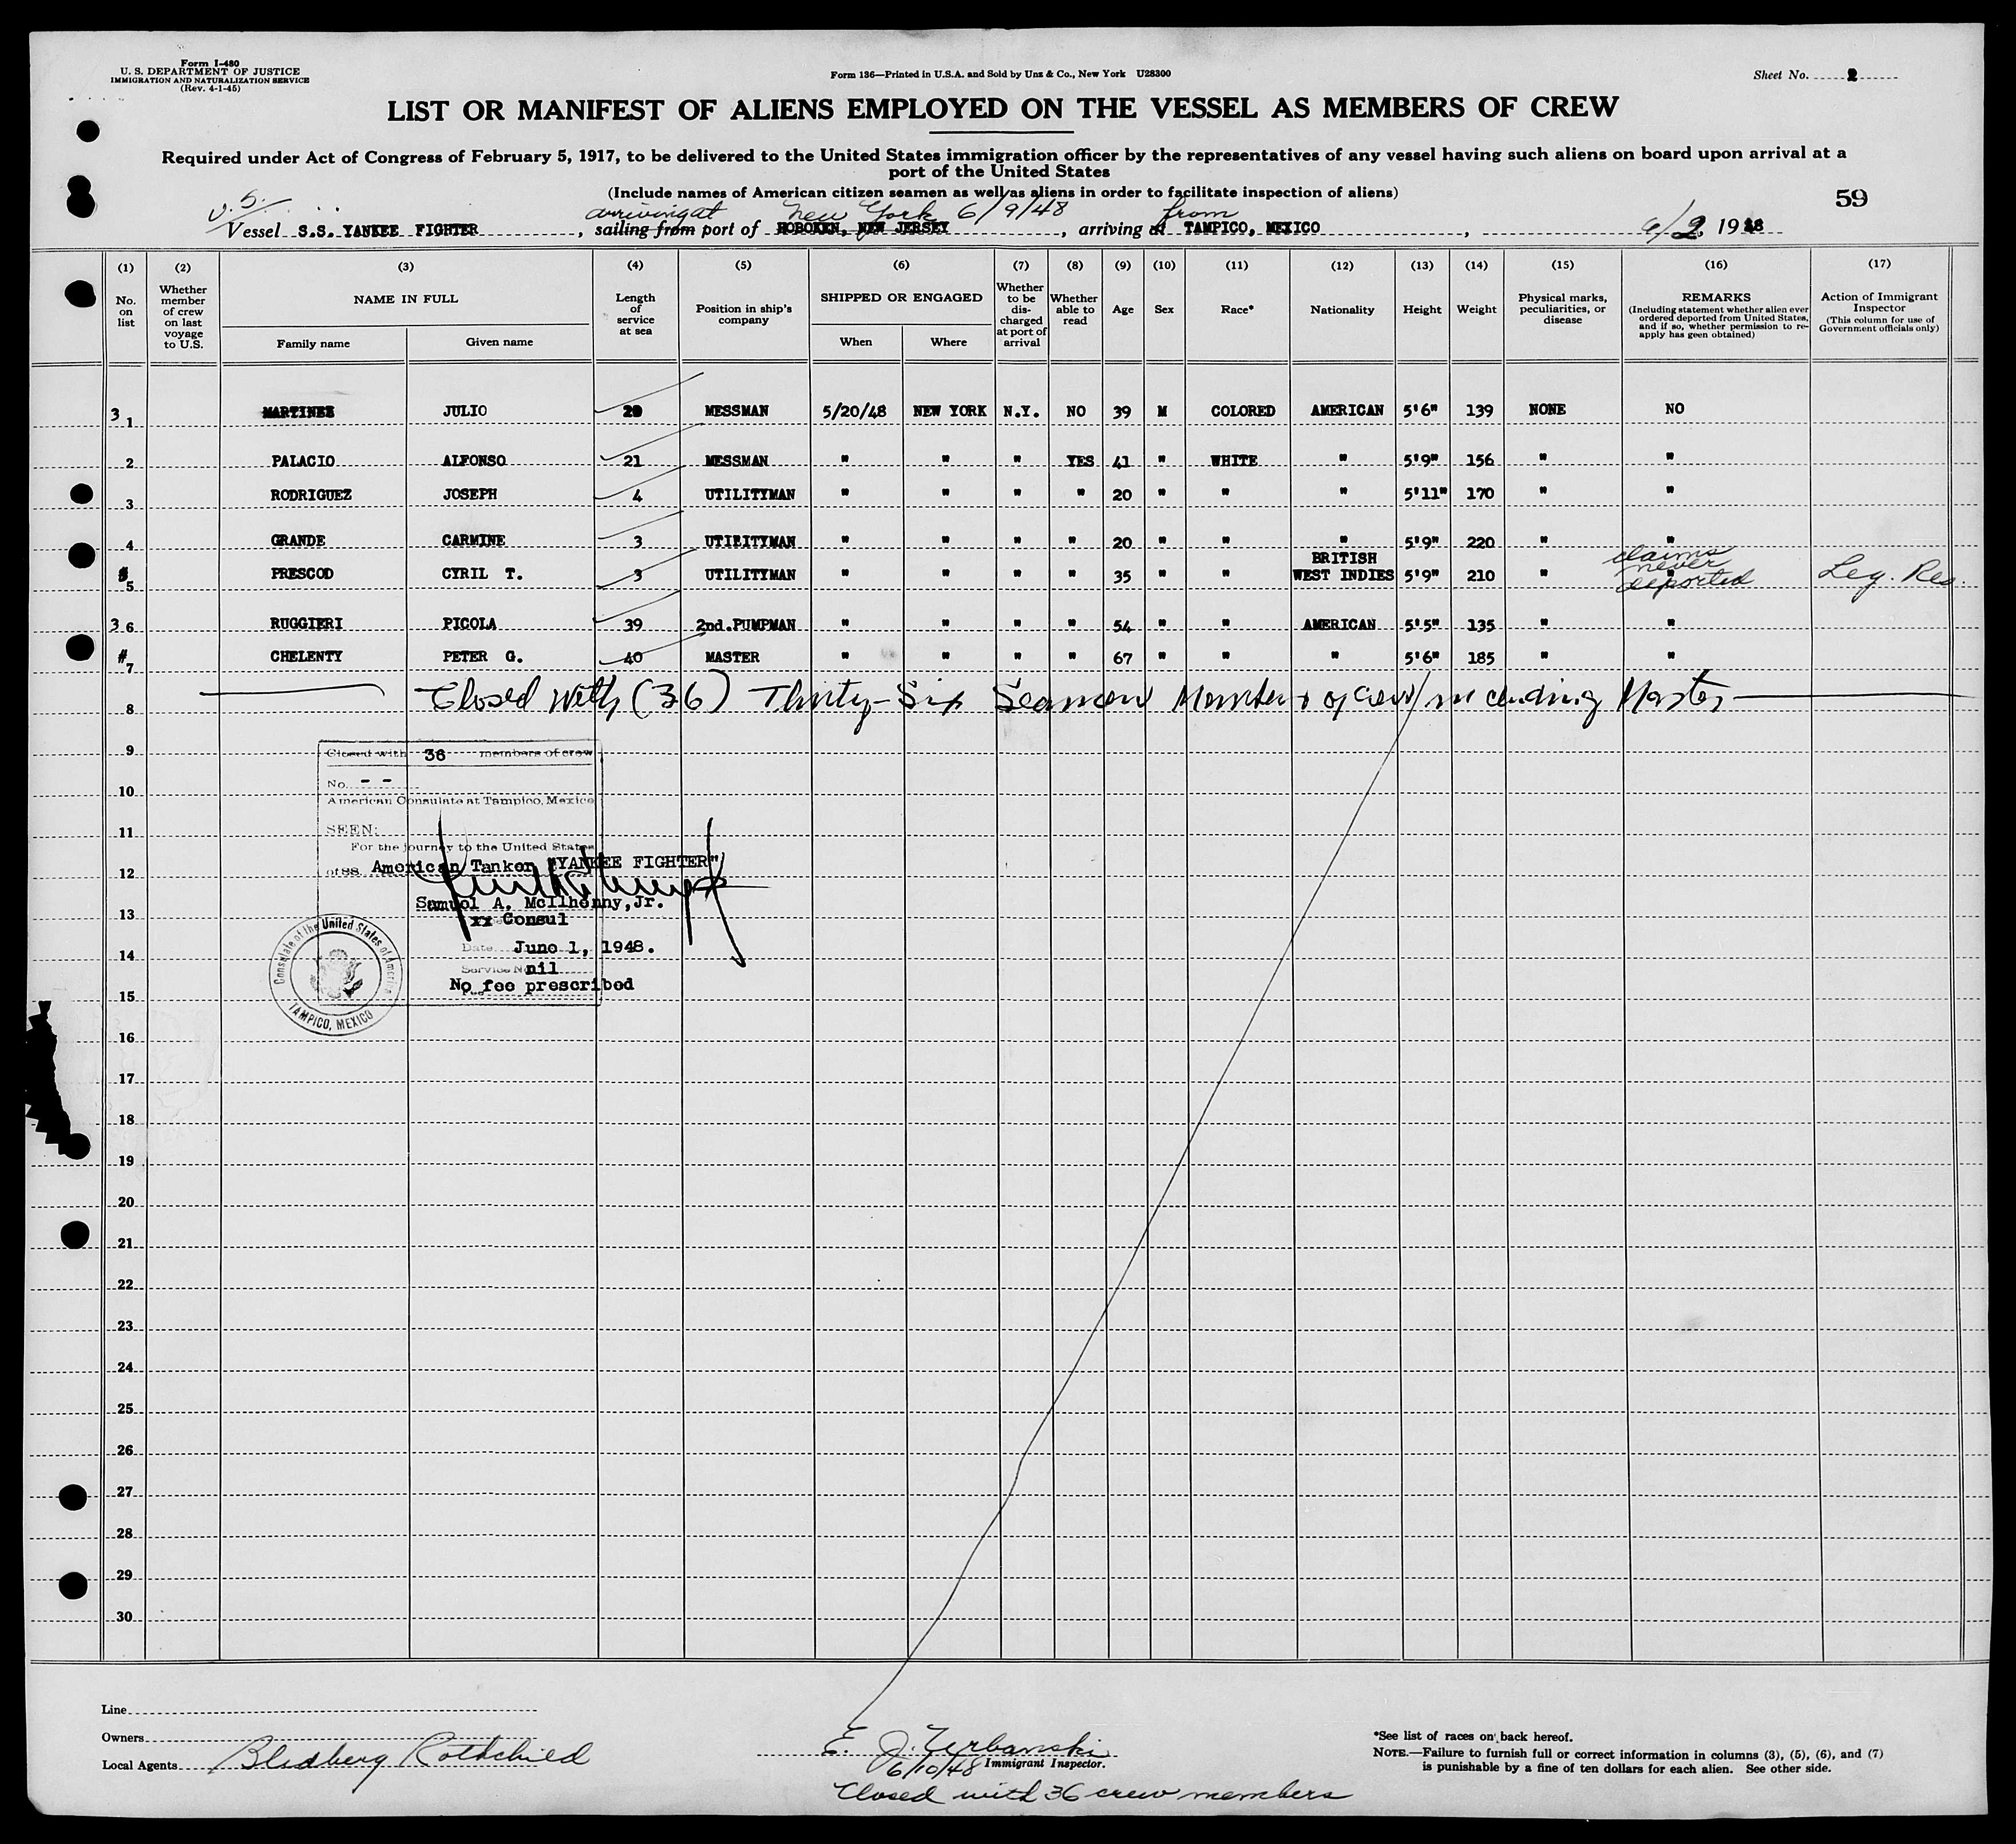 Form I-480
U. S. DEPARTMENT OF JUSTICE
IMMIGRATION AND NATURALIZATION SERVICE
(Rev. 4-1-45)
Form 136—Printed in U.S.A. and Sold by Unz & Co., New York U28300
Sheet No. 2
LIST OR MANIFEST OF ALIENS EMPLOYED ON THE VESSEL AS MEMBERS OF CREW
Required under Act of Congress of February 5, 1917, to be delivered to the United States immigration officer by the representatives of any vessel having such aliens on board upon arrival at a
port of the United States
(Include names of American citizen seamen as well as aliens in order to facilitate inspection of aliens)
59
U.S. arriving at New York 6/9/48 from
Vessel S.S. YANKEE FIGHTER, sailing from port of HOBOKEN, NEW JERSEY, arriving at TAMPICO, MEXICO, 6/2, 1948
(1) (2) (3) (4) (5) (6) (7) (8) (9) (10) (11) (12) (13) (14) (15) (16) (17)
No. on list
Whether member of crew on last voyage to U.S.
NAME IN FULL
Family name
Given name
Length of service at sea
Position in ship's company
SHIPPED OR ENGAGED
When
Where
Whether to be discharged at port of arrival
Whether able to read
Age
Sex
Race*
Nationality
Height
Weight
Physical marks, peculiarities, or disease
REMARKS
(Including statement whether alien ever ordered deported from United States, and if so, whether permission to re-apply has geen obtained)
Action of Immigrant Inspector
(This column for use of Government officials only)
3 1 MARTINEZ JULIO 20 MESSMAN 5/20/48 NEW YORK N.Y. NO 39 M COLORED AMERICAN 5'6" 139 NONE NO
2 PALACIO ALFONSO 21 MESSMAN " " " YES 41 " WHITE " 5'9" 156 " "
3 RODRIGUEZ JOSEPH 4 UTILITYMAN " " " " 20 " " " 5'11" 170 " "
4 GRANDE CARMINE 3 UTIBITYMAN " " " " 20 " " " 5'9" 220 " "
5 PRESCOD CYRIL T. 3 UTILITYMAN " " " " 35 " " BRITISH WEST INDIES 5'9" 210 " " claims never deported Leg. Res.
3 6 RUGGIERI PICOLA 39 2nd.PUMPMAN " " " " 54 " " AMERICAN 5'5" 135 " "
7 CHELENTY PETER G. 40 MASTER " " " " 67 " " " 5'6" 185 " "
8 Closed With (36) Thirty-Six Seamen Members of Crew including Master
9
Closed with 36 members of crew
No. - -
10
American Consulate at Tampico, Mexico
11
SEEN:
For the journey to the United States
12
of SS. American Tanker "YANKEE FIGHTER"
Samuel A. McIlhenny, Jr.
13
xx Consul
Date June 1, 1948.
14
Service No. nil
No fee prescribed
15
Consulate of the United States of America
TAMPICO, MEXICO
16
17
18
19
20
21
22
23
24
25
26
27
28
29
30
Line
Owners
Local Agents Blidberg Rothchild
E. J. Urbanski
6/10/48 Immigrant Inspector.
Closed with 36 crew members
*See list of races on back hereof.
NOTE.—Failure to furnish full or correct information in columns (3), (5), (6), and (7)
is punishable by a fine of ten dollars for each alien. See other side.